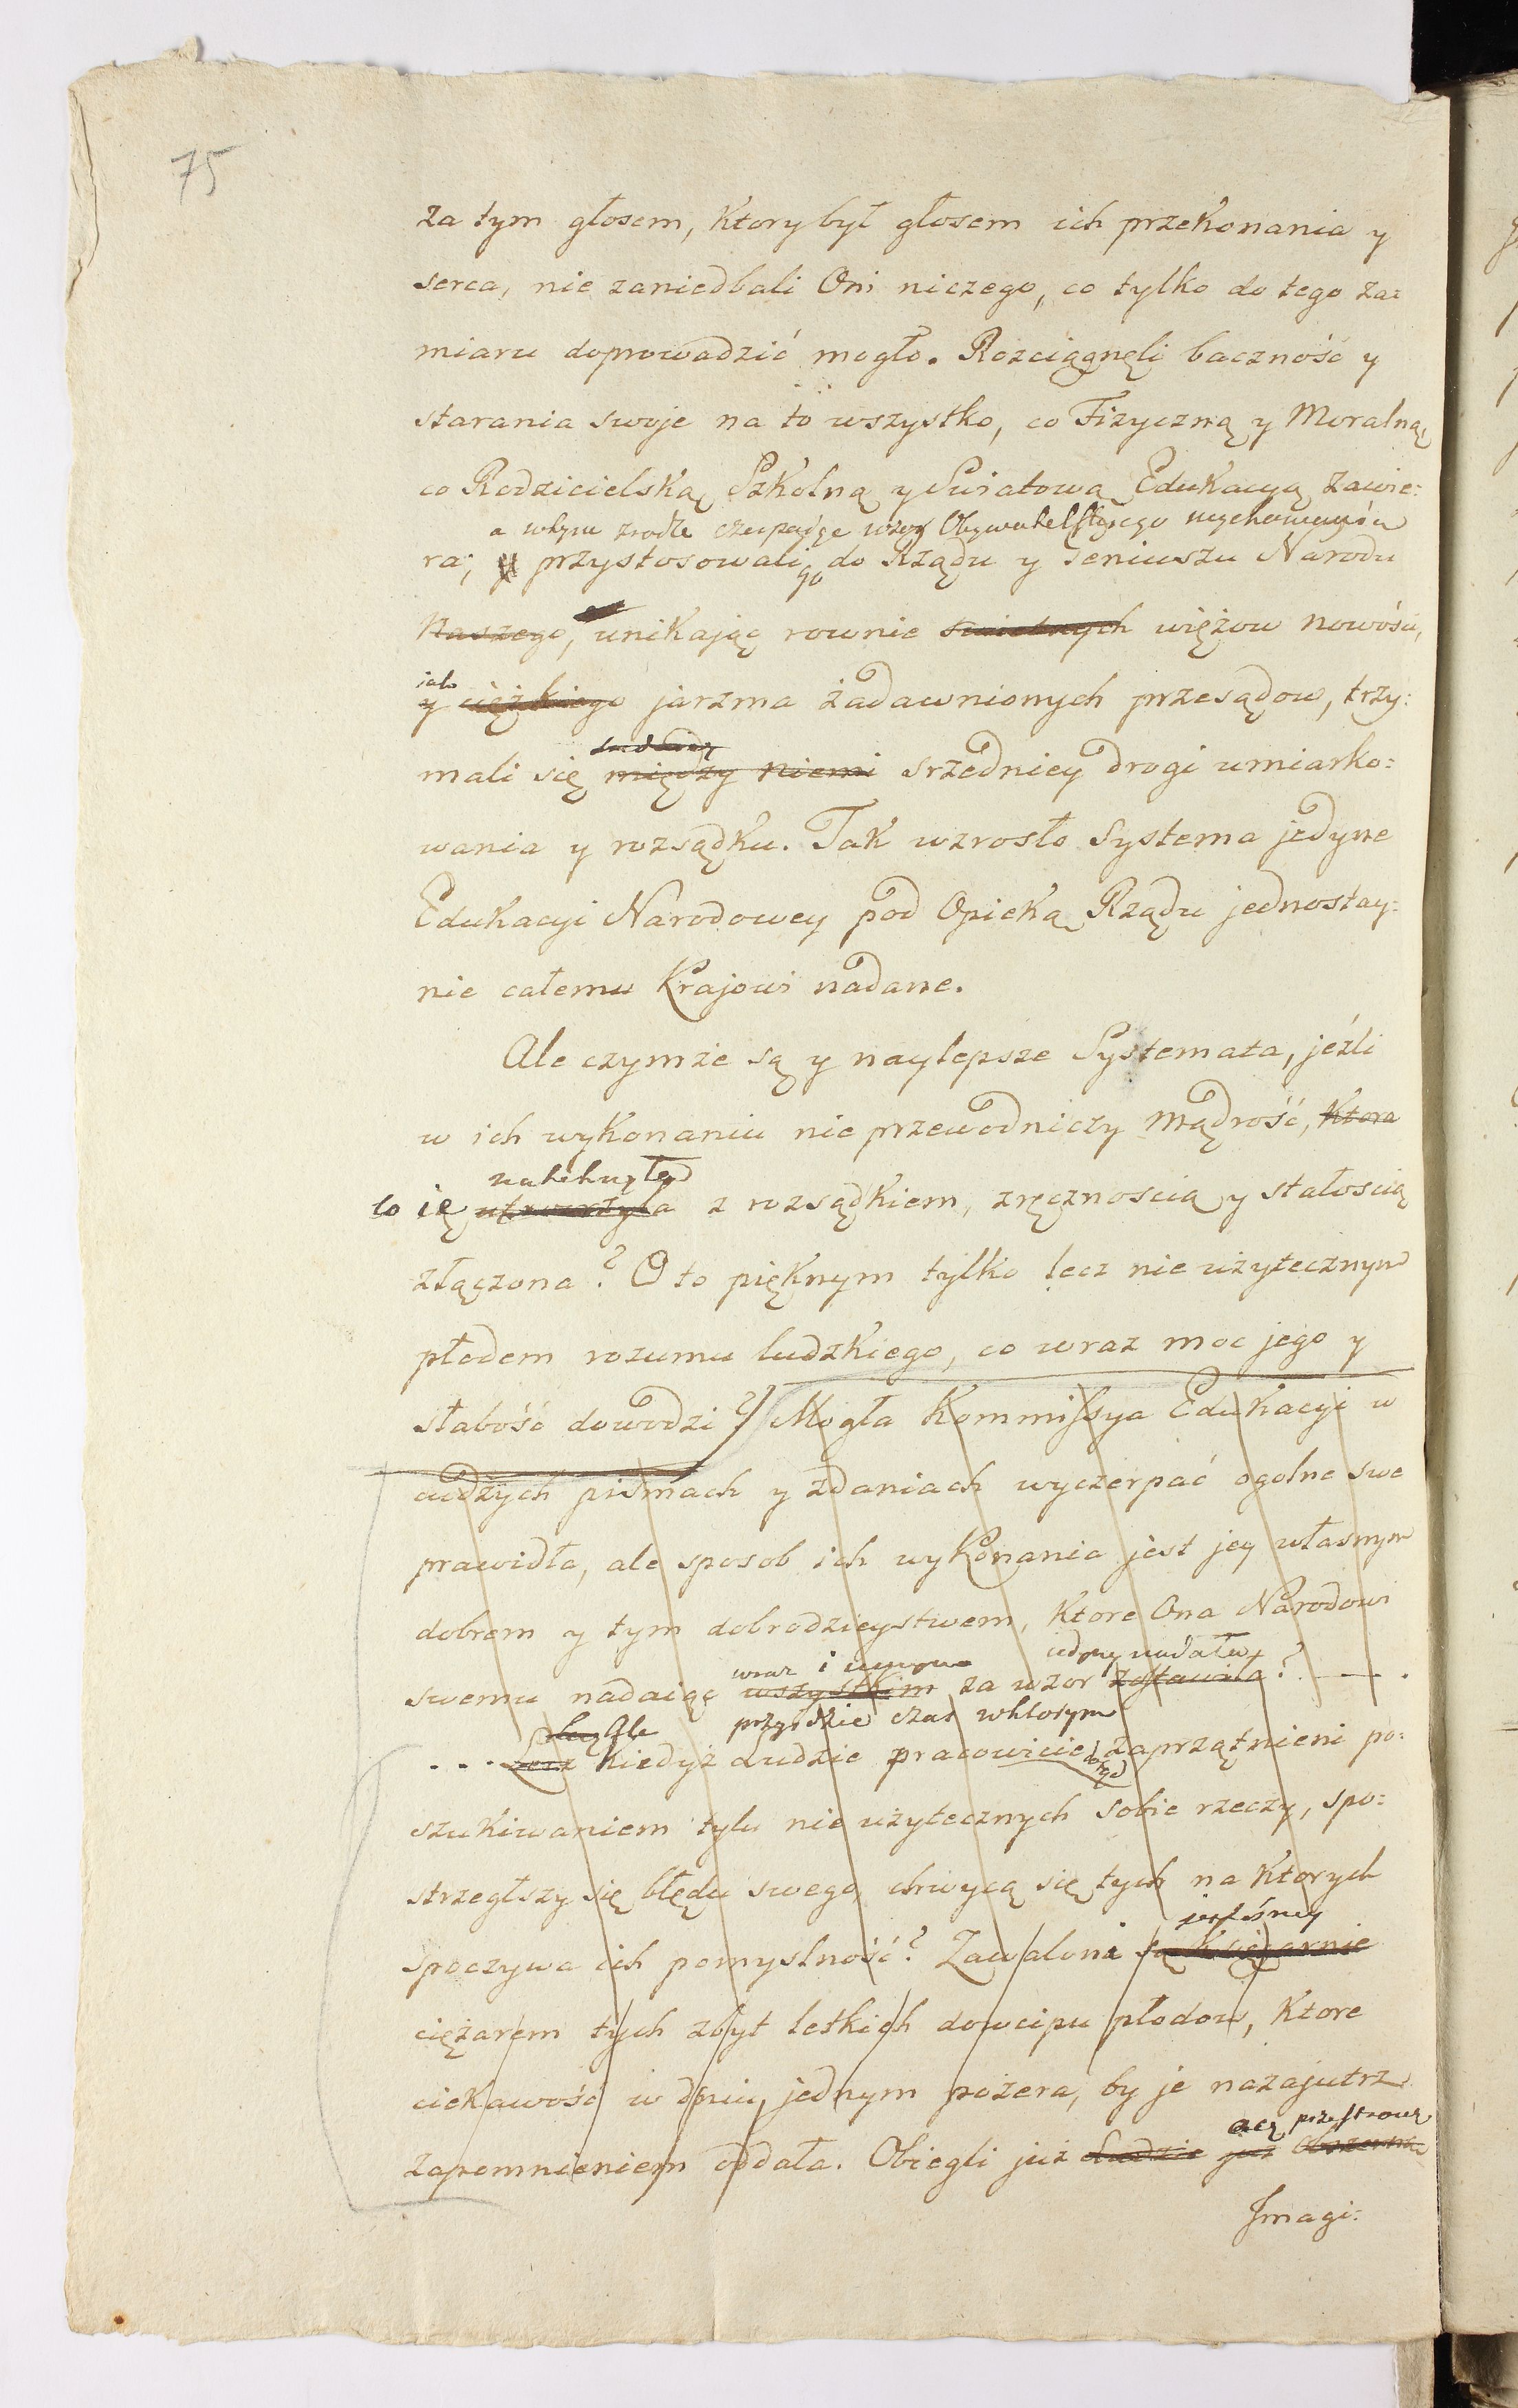 75
za tym głosem, Ktory był głosem ich przekonania y
serca, nie zaniedbali Oni niczego, co tylko do tego za:
miaru doprowadzić mogło. Rozciągnęli baczność y
starania swoje na to wszystko, co Fizyczną y Moralną
co Rodzicielską Szkolną y Swiatową Edukacyą zawie:
a w tym zrodle czerpając wzor Obywatelskiego wychowania
ra; y przystosowali go do Rządu y Geniuszu Narodu
Naszego, unikając rownie swietnych więzow nowości,
jako
y ciężkiego jarzma zadawnionych przesądow, trzy:
mali się między niemi srzedniey drogi umiarko:
wania y rozsądku. Tak wzrosło Systema jedyne
Edukacyi Narodowey pod Opieką Rządu jednostay:
nie całemu Krajowi nadane.
Ale czymże są y naylepsze Systemata, jeźli
w ich wykonaniu nie przewodniczy Mądrość, Ktora
natchnęła
co ię utworzyła z rozsądkiem, zręcznoscią y stałoscią
złączona? O to pięknym tylko lecz nie użytecznym
płodem rozumu ludzkiego, co wraz moc jego y
słabość dowodzi? Mogła Kommissya Edukacyi w
cudzych pismach y zdaniach wyczerpać ogolne swe
prawidła, ale sposob ich wykonania jest jey własnym
dobrem y tym dobrodzieystwem, Ktore Ona Narodowi
wraz i
swemu nadaiąc wszystkim za wzor zostawiła?
Ale przyidzie czas w ktorym
... Lecz kiedyż Ludzie pracowicie dotąd zaprzątnieni po:
szukiwaniem tylu nie użytecznych sobie rzeczy, spo:
strzegłszy się błędu swego, chwycą się tych na Ktorych
jesteśmy
spoczywa ich pomyslność? Zawaloni są Księgarnie
ciężarem tych zbyt letkich dowcipu płodow, Ktore
ciekawość w dniu jednym pożera, by je nazajutrz
przestrone
zapomnieniem oddała. Obiegli już Ludzie już obszerne
Imagi: